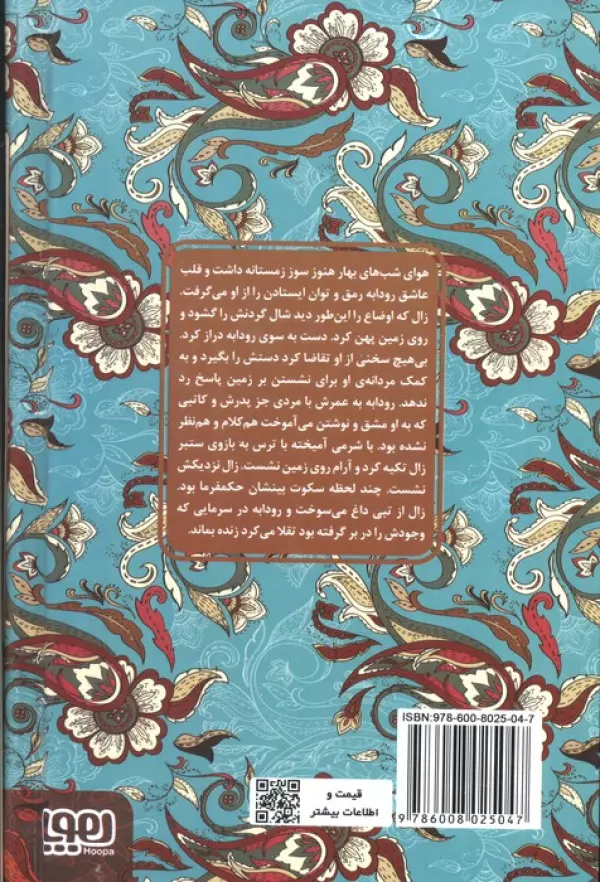 هوای شب‌های بهار هنوز سوز زمستانه داشت و قلب
عاشق رودابه رمق و توان ایستادن را از او می‌گرفت.
زال که اوضاع را این‌طور دید شال گردنش را گشود و
روی زمین پهن کرد. دست به سوی رودابه دراز کرد.
بی‌هیچ سخنی از او تقاضا کرد دستش را بگیرد و به
کمک مردانه‌ی او برای نشستن بر زمین پاسخ رد
ندهد. رودابه به عمرش با مردی جز پدرش و کاتبی
که به او مشق و نوشتن می‌آموخت هم‌کلام و هم‌نظر
نشده بود. با شرمی آمیخته با ترس به بازوی ستبر
زال تکیه کرد و آرام روی زمین نشست. زال نزدیکش
نشست. چند لحظه سکوت بینشان حکمفرما بود.
زال از تبی داغ می‌سوخت و رودابه در سرمایی که
وجودش را در بر گرفته بود تقلا می‌کرد زنده بماند.
ISBN:978-600-8025-04-7
9 786008 025047
قیمت و
اطلاعات بیشتر
هوپا
Hoopa